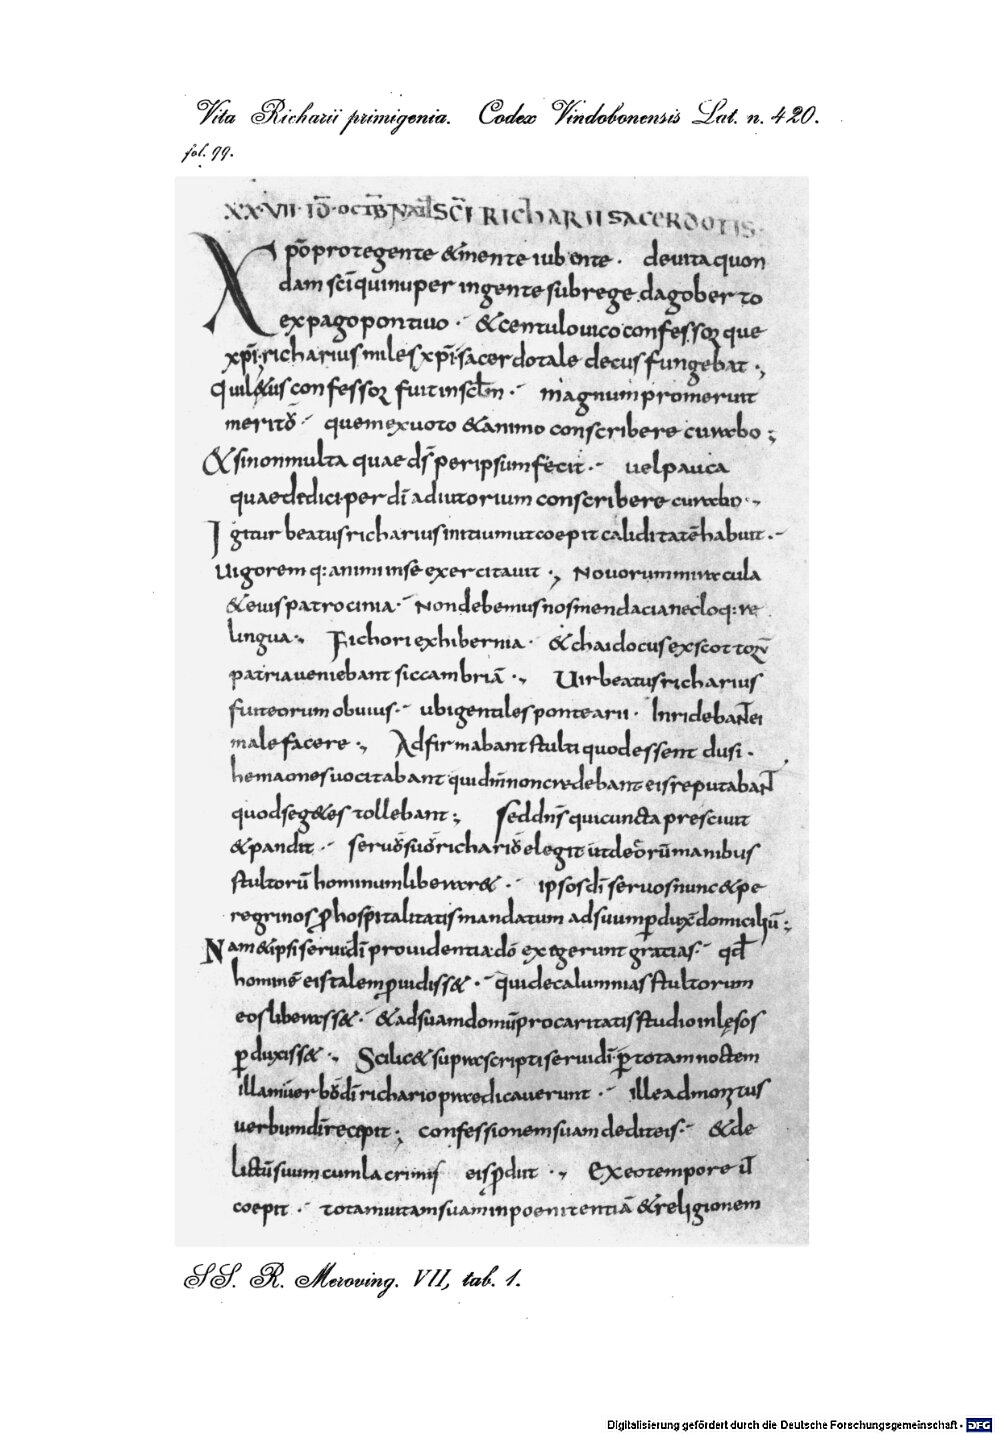 Vita Richarii primigenia. Codex Vindobonensis Lat. n. 420.
fol. 99.
XXVII ID OCTB NAT SCI RICHARII SACERDOTIS
Xpō protegente & mente iubente · de vita quon
dam scī qui nuper ingente sub rege dagoberto
ex pago pontiuo · & centulo uico confessor que
xpī richarius miles xpī sacerdotale decus fungebat ·,
qui confessor fuit · magnum promeruit
merito · quem ex uoto & animo conscribere curabo ;
& si non multa quae ds̄ per ipsum fecit · uel pauca
quae dedici per dī adiutorium conscribere curabo ·
Igitur beatus richarius initium ut coepit caliditatē habuit ·
uigorem q: animi in se exercitauit ·, Nouorum miracula
& eius patrocinia · Non debemus nos mendacia nec loq: re
lingua ·, Fichori ex hibernia · & chaidocus ex scottorū
patria ueniebant siccambriā ·, Uir beatus richarius
fuit eorum obuius · ubi gentiles pontearii · Inridebant ei
male facere ·, Adfirmabant stulti quod essent dusi ·
hemaones uocitabant qui dm̄ non credebant eis reputabant
quod seg&es tollebant ·, Sed dn̄s qui cuncta presciuit
& pandit · seruo suo richario elegit ut de orum manibus
stultorū hominum liberar& · ipsos dī seruos nunc & pe
regrinos p hospitalitatis mandatum ad suum p dux domiciliū ·,
Nam & ipsi serui dī prouidentia dō exegerunt gratias · qd
hominē eis talem puidiss& · qui de calumnias stultorum
eos liberass& · & ad suam domū pro caritatis studio inlęsos
p duxiss& ·, Scilic& suprascripti serui dī p totam noctem
illam uerbo dī richario praedicauerunt · ille admortus
uerbum dī recepit ·, confessionem suam dedit eis · & de
lictū suum cum lacrimis eis pdiit ·, Ex eo tempore
coepit · totam uitam suam in poenitentiā & religionem
SS. R. Meroving. VII, tab. 1.
Digitalisierung gefördert durch die Deutsche Forschungsgemeinschaft - DFG